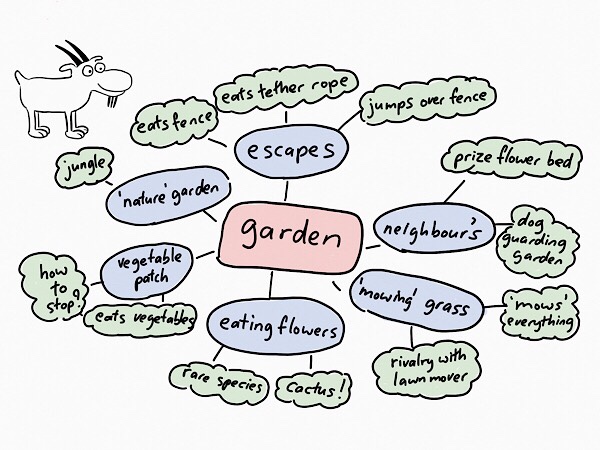 eats tether rope
eats fence
jumps over fence
escapes
jungle
'nature' garden
prize flower bed
garden
neighbour's
dog
guarding
garden
vegetable
patch
how
to
stop?
eats vegetables
'mowing' grass
'mows'
everything
eating flowers
rivalry with
lawn mover
rare species
cactus!